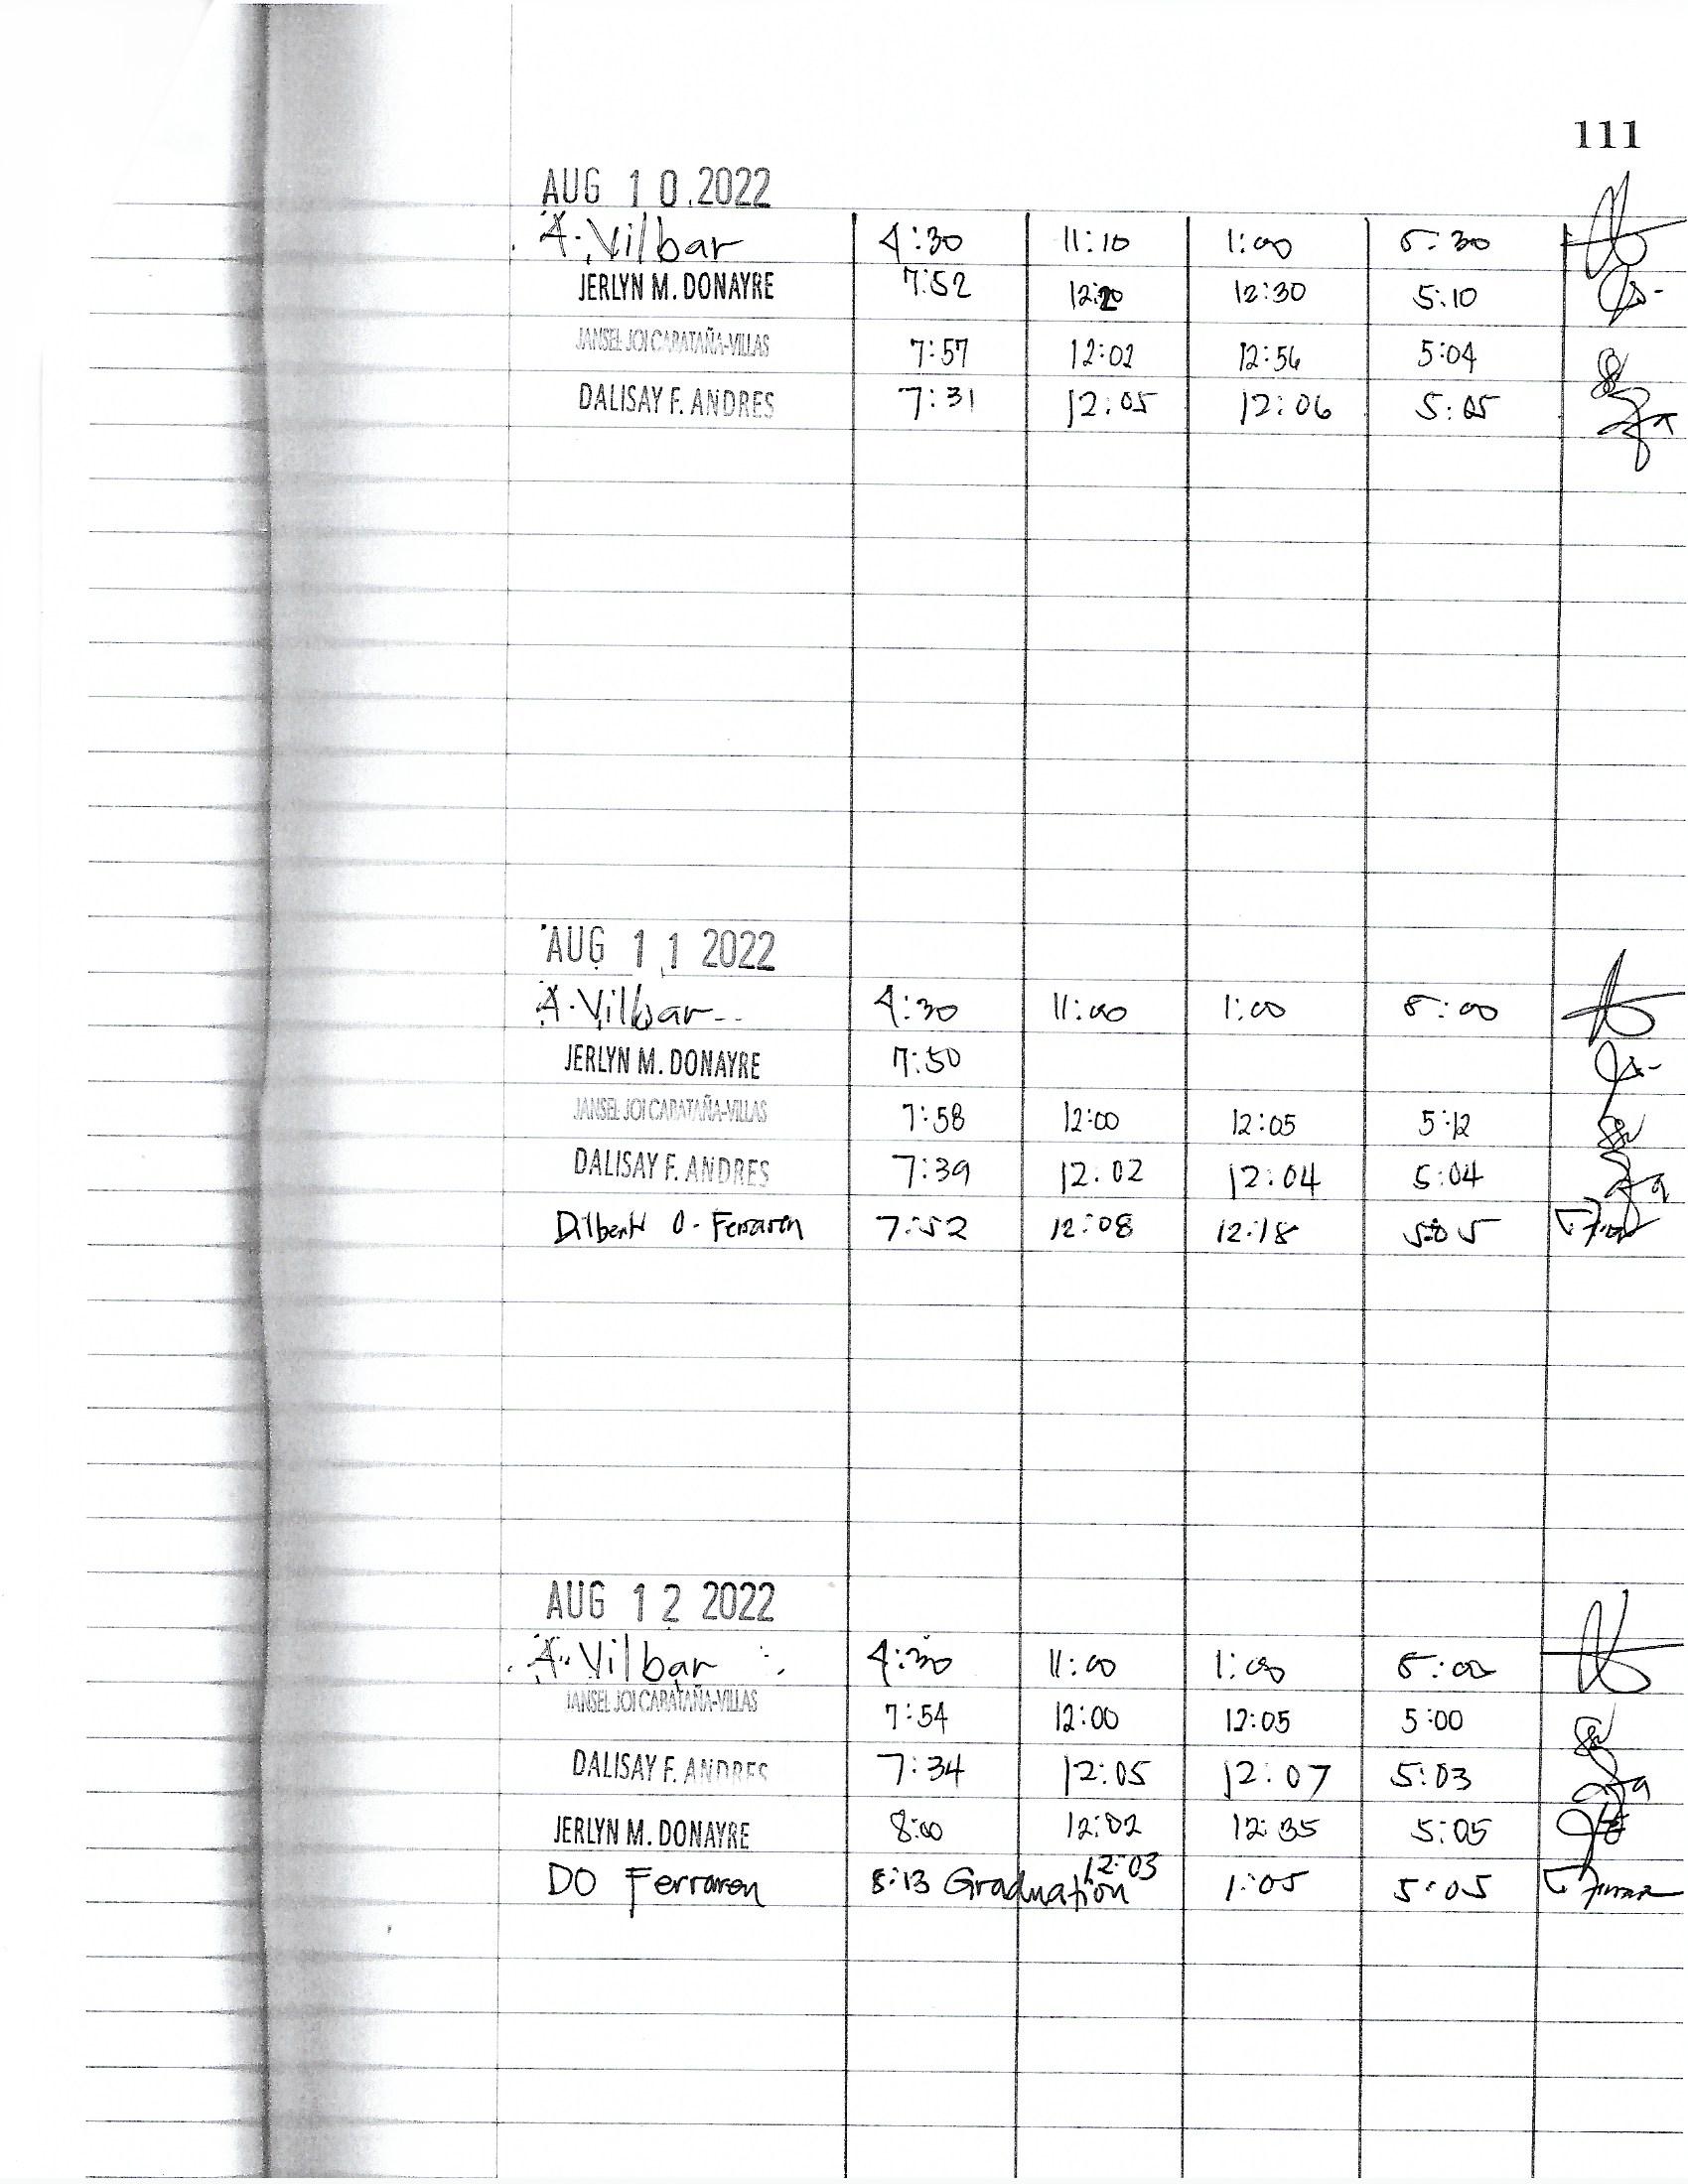 111
AUG 10.2022
A. Vilbar 4:30 11:10 1:00 5:30
JERLYN M. DONAYRE 7:52 12:20 12:30 5:10
JANSEL JOI CABATAÑA-VILLAS 7:57 12:02 12:56 5:04
DALISAY F. ANDRES 7:31 12:05 12:06 5:05
AUG 11 2022
A. Vilbar 4:30 11:00 1:00 5:00
JERLYN M. DONAYRE 7:50
JANSEL JOI CABATAÑA-VILLAS 7:58 12:00 12:05 5:12
DALISAY F. ANDRES 7:39 12:02 12:04 5:04
Dilbert O. Ferraren 7:52 12:08 12:18 5:05
AUG 12 2022
A. Vilbar 4:30 11:00 1:00 5:00
JANSEL JOI CABATAÑA-VILLAS 7:54 12:00 12:05 5:00
DALISAY F. ANDRES 7:34 12:05 12:07 5:03
JERLYN M. DONAYRE 8:00 12:02 12:35 5:05
DO Ferraren 8:13 Graduation 12:03 1:05 5:05